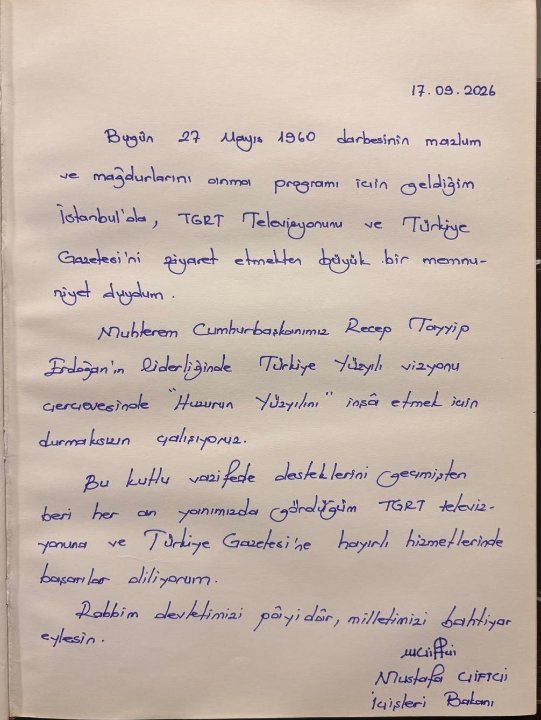 17.09.2026
Bugün 27 Mayıs 1960 darbesinin mazlum
ve mağdurlarını anma programı için geldiğim
İstanbul'da, TGRT Televizyonunu ve Türkiye
Gazetesi'ni ziyaret etmekten büyük bir memnu-
niyet duydum.
Muhterem Cumhurbaşkanımız Recep Tayyip
Erdoğan'ın liderliğinde Türkiye Yüzyılı vizyonu
çerçevesinde "Huzurun Yüzyılını" inşâ etmek için
durmaksızın çalışıyoruz.
Bu kutlu vazifede desteklerini geçmişten
beri her an yanımızda gördüğüm TGRT televiz-
yonuna ve Türkiye Gazetesi'ne hayırlı hizmetlerinde
başarılar diliyorum.
Rabbim devletimizi pâyidâr, milletimizi bahtiyar
eylesin.
MÇiftçi
Mustafa ÇİFTÇİ
İçişleri Bakanı